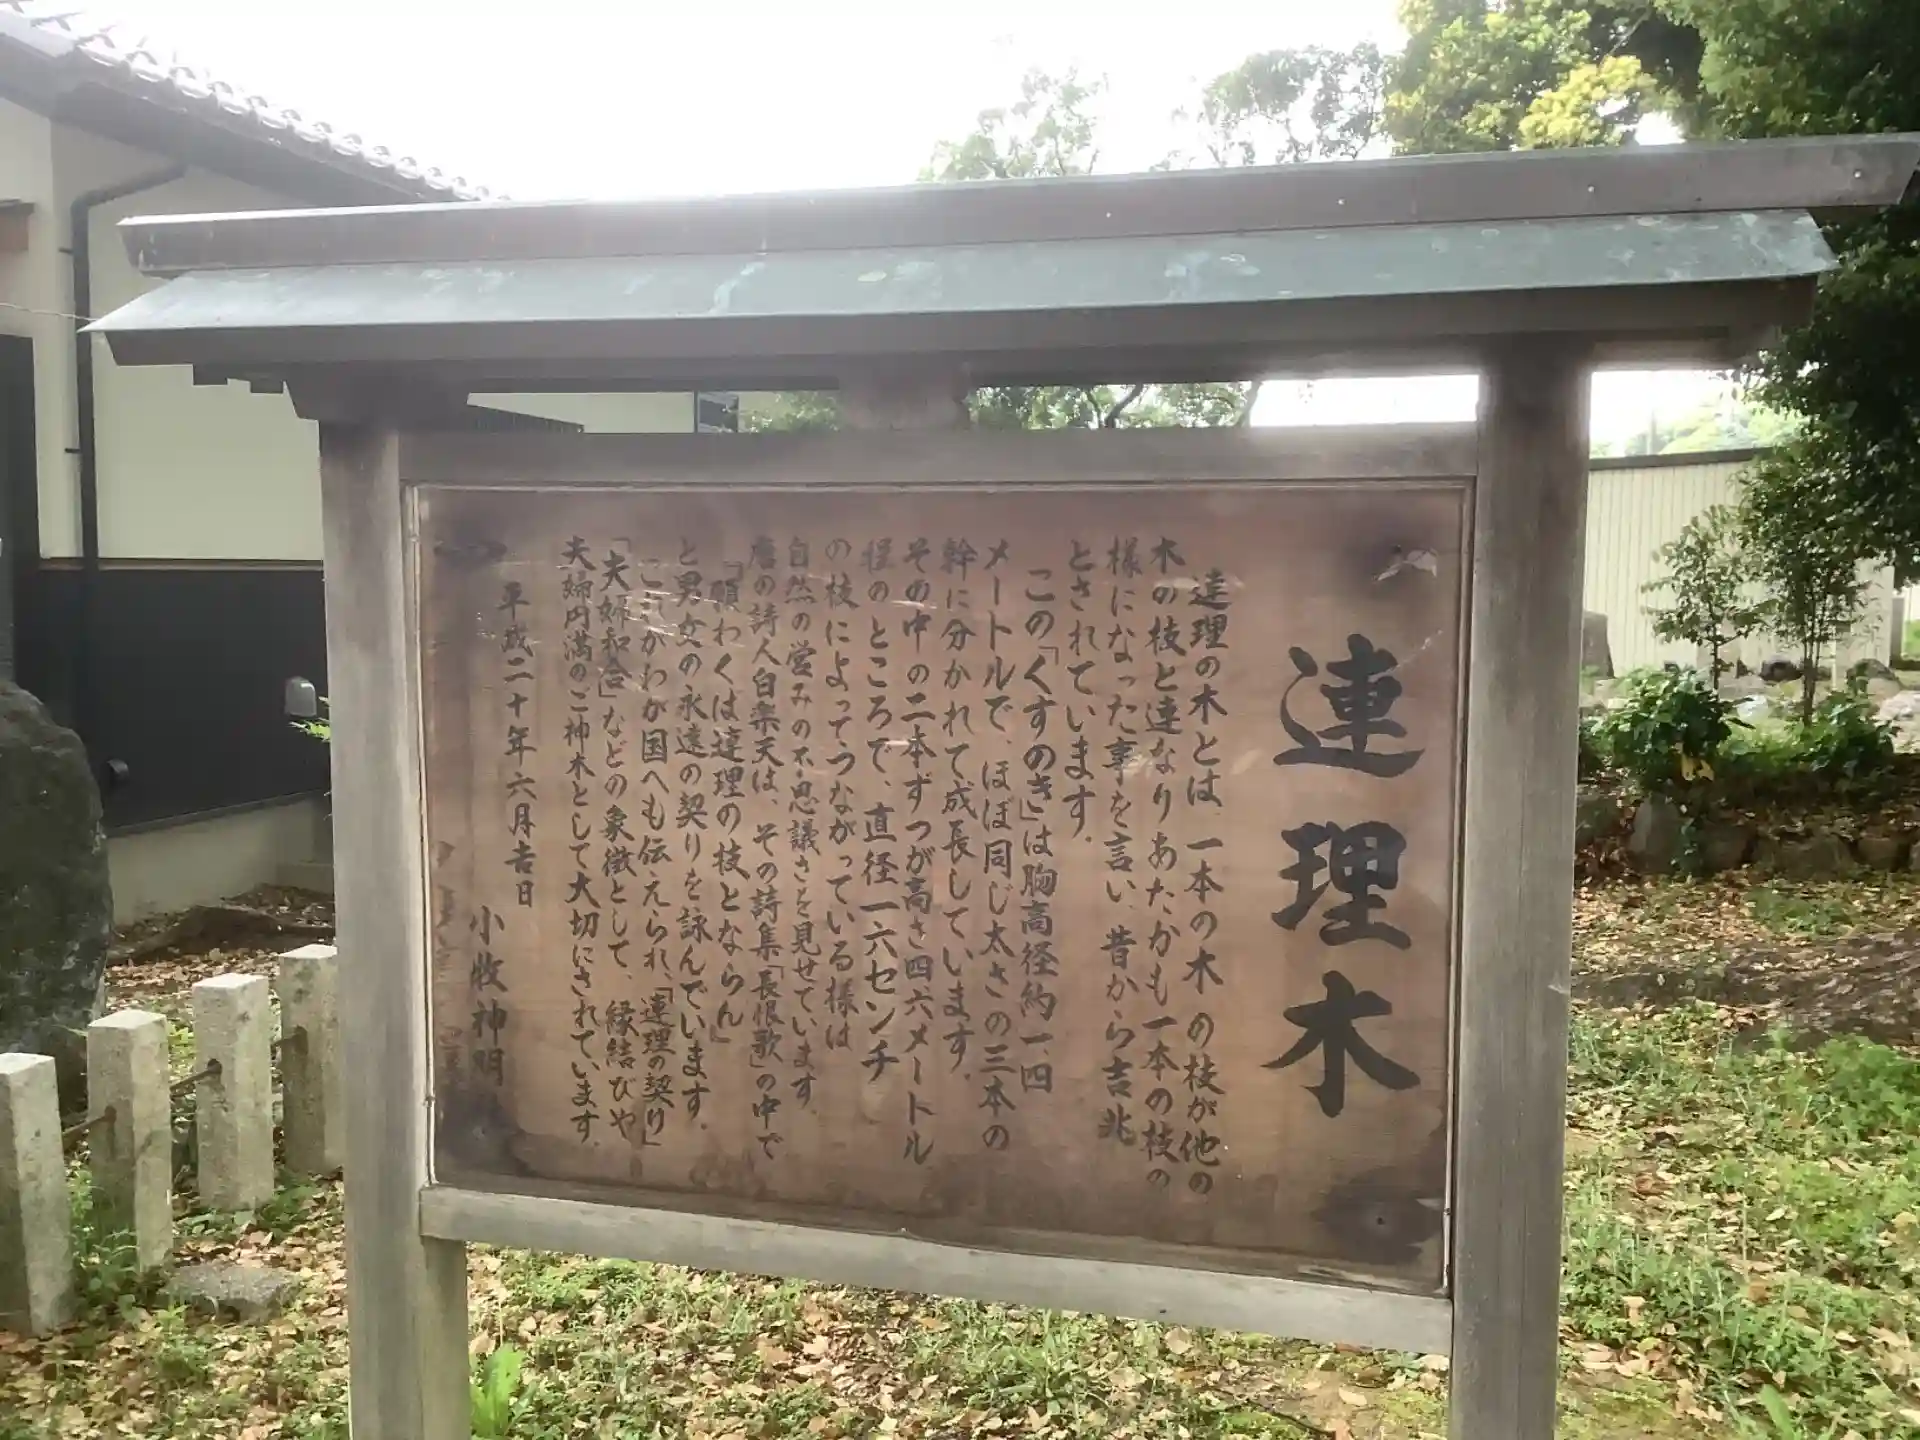 連理木
連理の木とは、一本の木の枝が他の
木の枝と連なりあたかも一本の枝の
様になった事を言い、昔から吉兆
とされています。
この「くすのき」は胸高径約一、四
メートルで、ほぼ同じ太さの三本の
幹に分かれて成長しています。
その中の二本ずつが高さ四、六メートル
程のところで、直径一六センチ
の枝によってつながっている様は
自然の営みの不思議さを見せています。
唐の詩人白楽天は、その詩集「長恨歌」の中で
「願わくは連理の枝とならん」
と男女の永遠の契りを詠んでいます。
これがわが国へも伝えられ、「連理の契り」
「夫婦和合」などの象徴として、縁結びや
夫婦円満のご神木として大切にされています。
平成二十年六月吉日
小牧神明